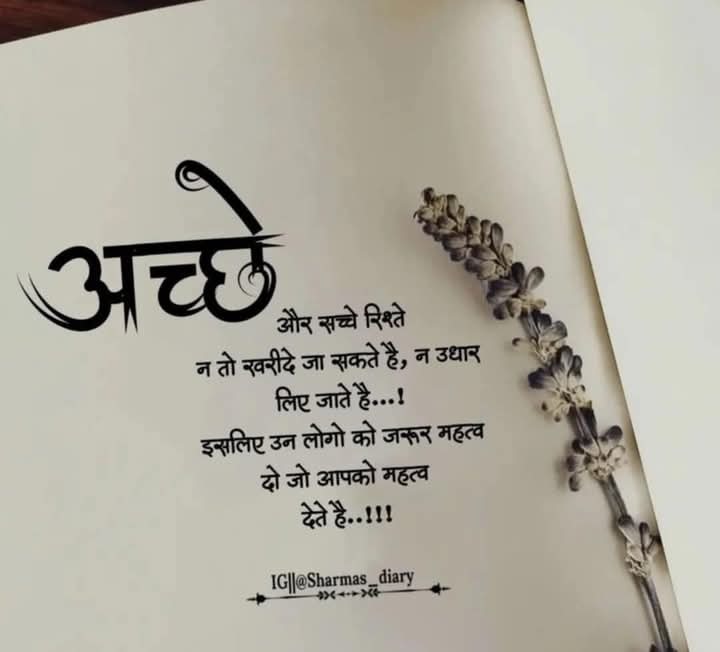 अच्छे
और सच्चे रिश्ते
न तो खरीदे जा सकते है, न उधार
लिए जाते है...!
इसलिए उन लोगो को जरूर महत्व
दो जो आपको महत्व
देते है..!!!
IG||@Sharmas_diary